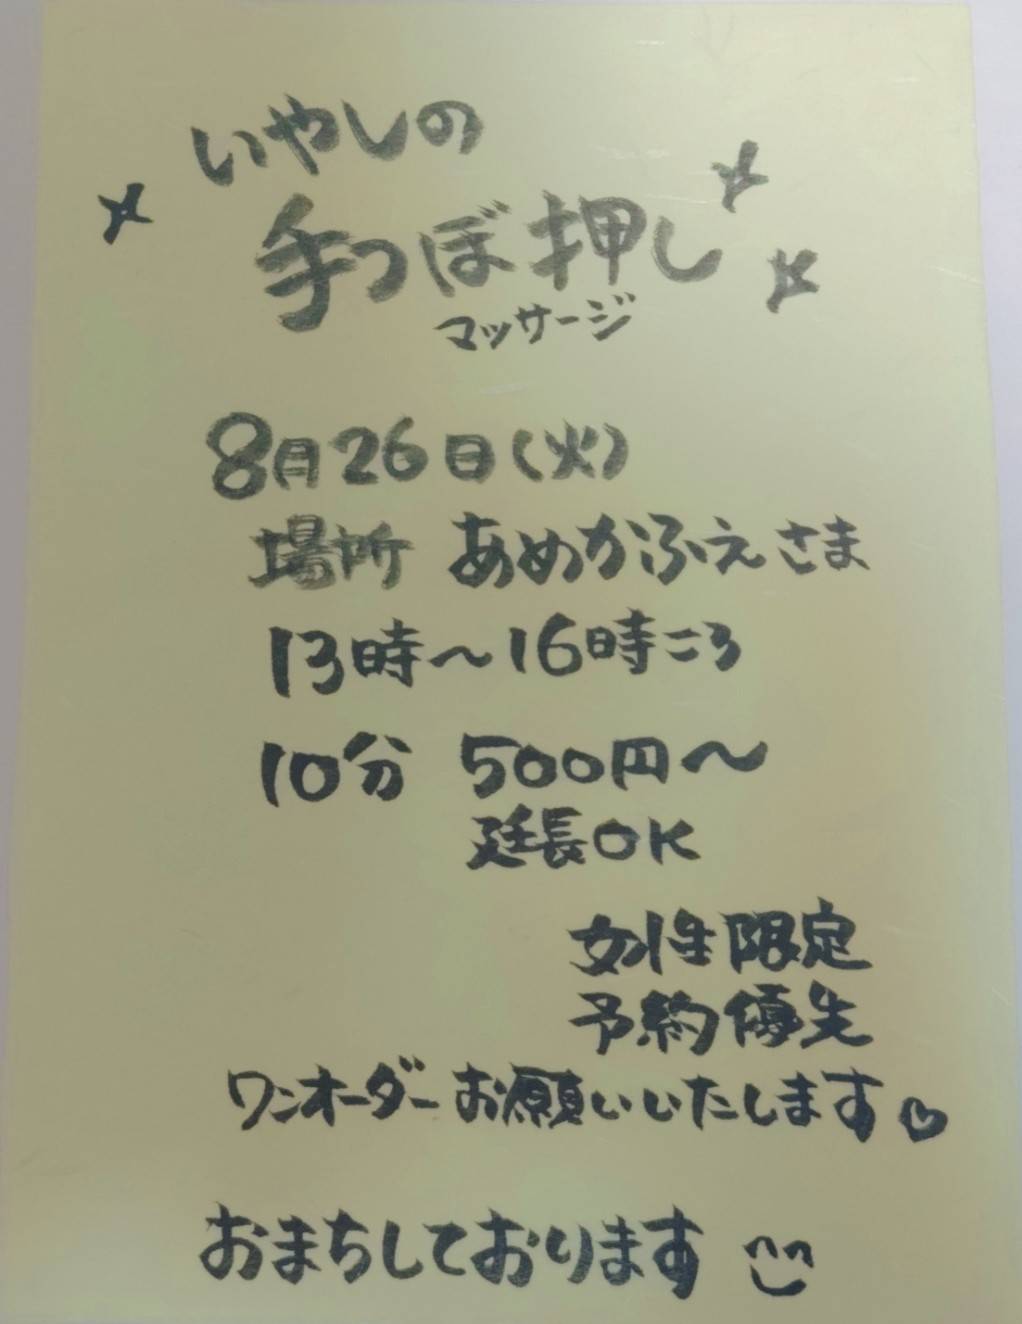 いやしの
手つぼ押し
マッサージ
8月26日(火)
場所 あめかふぇさま
13時〜16時ころ
10分 500円〜
延長OK
女性限定
予約優先
ワンオーダーお願いいたします♡
おまちしております